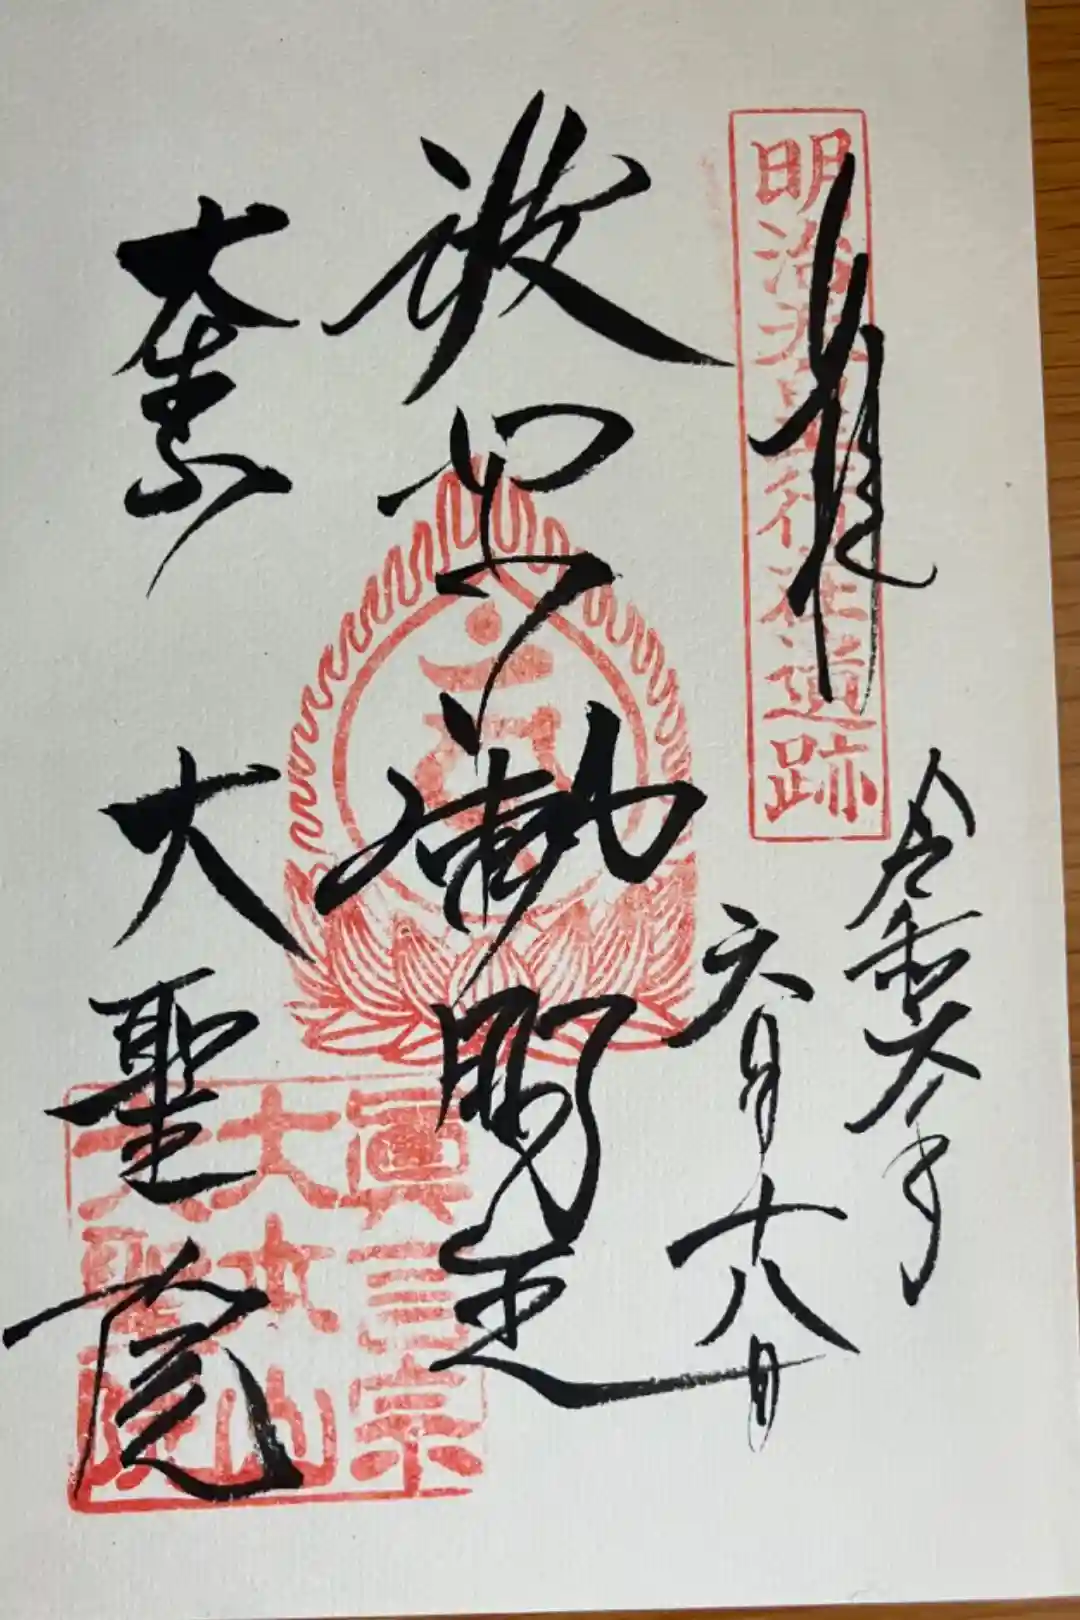 奉拝
明治天皇行在遺跡
令和六年
六月十八日
波切不動明王
大本山 大聖院
眞言宗
大本山
大聖院